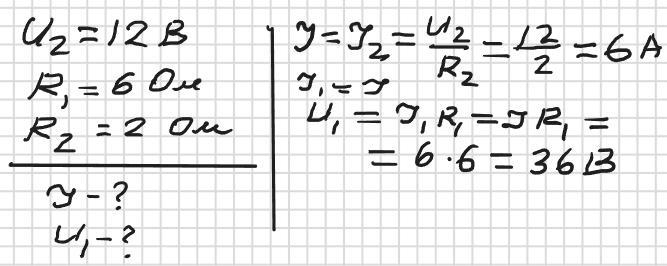 U₂ = 12 В
R₁ = 6 Ом
R₂ = 2 Ом
I - ?
U₁ - ?
I = I₂ = U₂/R₂ = 12/2 = 6 А
I₁ = I
U₁ = I₁R₁ = IR₁ =
= 6 · 6 = 36 В